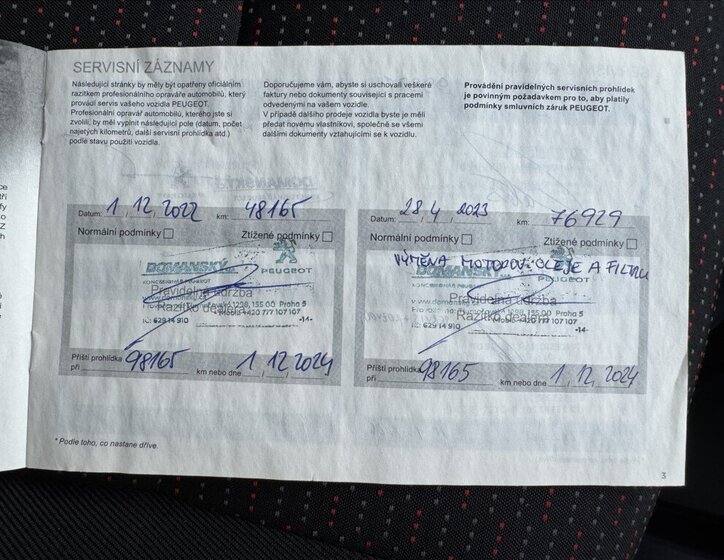 SERVISNÍ ZÁZNAMY
Následující stránky by měly být opatřeny oficiálním
razítkem profesionálního opraváře automobilů, který
provádí servis vašeho vozidla PEUGEOT.
Profesionální opravář automobilů, kterého jste si
zvolili, by měl vyplnit následující pole (datum, počet
najetých kilometrů, další servisní prohlídka atd.)
podle stavu použití vozidla.
Doporučujeme vám, abyste si uschovali veškeré
faktury nebo dokumenty související s pracemi
odvedenými na vašem vozidle.
V případě dalšího prodeje vozidla byste je měli
předat novému vlastníkovi, společně se všemi
dalšími dokumenty vztahujícími se k vozidlu.
Provádění pravidelných servisních prohlídek
je povinným požadavkem pro to, aby platily
podmínky smluvních záruk PEUGEOT.
Datum: 1, 12, 2022 km: 48165
Normální podmínky Ztížené podmínky
DOMANSKÝ PEUGEOT
KONCESIONÁŘ PEUGEOT
Pravidelná údržba
1298, 155 00 Praha 5
Razítko dealera
+420 777 107 107
IČ: 629 14 910 -14-
Příští prohlídka
při 98165 km nebo dne 1, 12, 2024
Datum: 28, 4, 2023 km: 76929
Normální podmínky Ztížené podmínky
VÝMĚNA MOTOROV. OLEJE A FILTRU
DOMANSKÝ PEUGEOT
KONCESIONÁŘ PEUGEOT
Pravidelná údržba
1298, 155 00 Praha 5
Razítko dealera
+420 777 107 107
IČ: 629 14 910 -14-
Příští prohlídka
při 98165 km nebo dne 1, 12, 2024
* Podle toho, co nastane dříve.
3